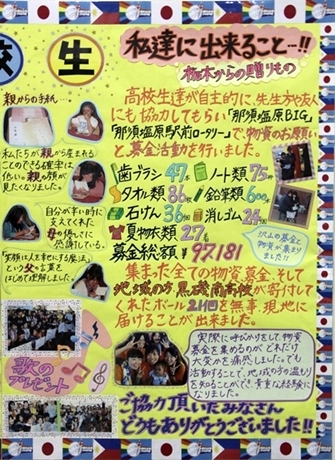 校生
私達に出来ること…!!
栃木からの贈りもの
高校生達が自主的に、先生方や友人
にも協力してもらい「那須塩原BIG」
「那須塩原駅前ロータリー」で、物資のお願い
と募金活動を行いました。
歯ブラシ 47本 ノート類 75冊
タオル類 86枚 鉛筆類 600本
石けん 36個 消しゴム 24個
夏物衣類 27着
募金総額 ¥97181
沢山の募金と
物資が集まり
ました!!
集まった全ての物資、募金、そして
地域の方、黒磯南高校が寄付して
くれたボール21個を無事、現地に
届けることが出来ました。
実際に呼びかけをして、物資
募金を集めるのが、どれだけ
大変かを痛感しました。でも
活動することで、地域の方の温もり
を知ることができ、貴重な経験に
なりました。
ご協力頂いたみなさん
どうもありがとうございました!!
親からの手紙
私たちが親から産まれる
ことのできる確率は
低い。親の顔が
見たくなりました。
自分が辛い時に
支えてくれた
母の優しさに
感謝している。
「笑顔は人を幸せにする魔法」
という父の言葉を
はじめて理解しました。
歌の
プレゼント